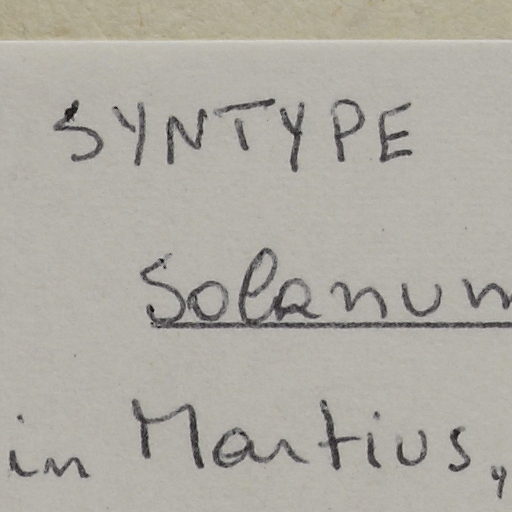 SYNTYPE
Solanum
in Martius,